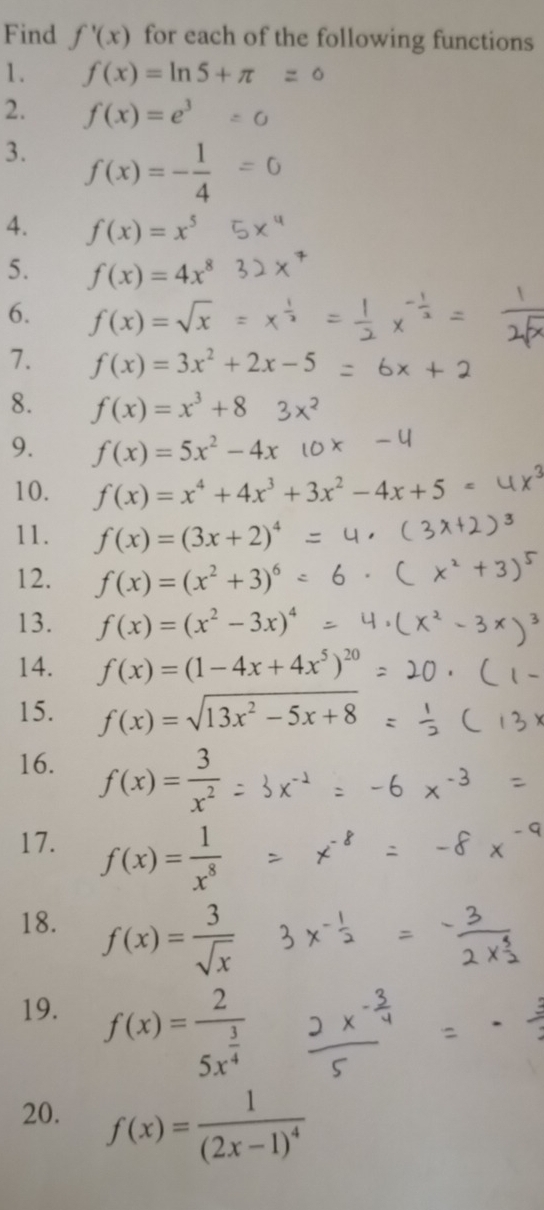 Find f'(x) for each of the following functions
1. f(x) = ln 5 + π = 0
2. f(x) = e³ = 0
3. f(x) = -1/4 = 0
4. f(x) = x⁵ 5x⁴
5. f(x) = 4x⁸ 32x⁷
6. f(x) = √x = x^(1/2) = 1/2 x^(-1/2) = 1/(2√x)
7. f(x) = 3x² + 2x - 5 = 6x + 2
8. f(x) = x³ + 8 3x²
9. f(x) = 5x² - 4x 10x - 4
10. f(x) = x⁴ + 4x³ + 3x² - 4x + 5 = 4x³
11. f(x) = (3x + 2)⁴ = 4 · (3x+2)³
12. f(x) = (x² + 3)⁶ = 6 · (x² + 3)⁵
13. f(x) = (x² - 3x)⁴ = 4·(x² - 3x)³
14. f(x) = (1 - 4x + 4x⁵)²⁰ = 20 · (1 -
15. f(x) = √(13x² - 5x + 8) = 1/2 (13x
16. f(x) = 3/x² = 3x⁻² = -6x⁻³ =
17. f(x) = 1/x⁸ = x⁻⁸ = -8x⁻⁹
18. f(x) = 3/√x 3x^(-1/2) = -3/(2x^(3/2))
19. f(x) = 2/(5x^(3/4)) 2x^(-3/4)/5 = -
20. f(x) = 1/(2x - 1)⁴